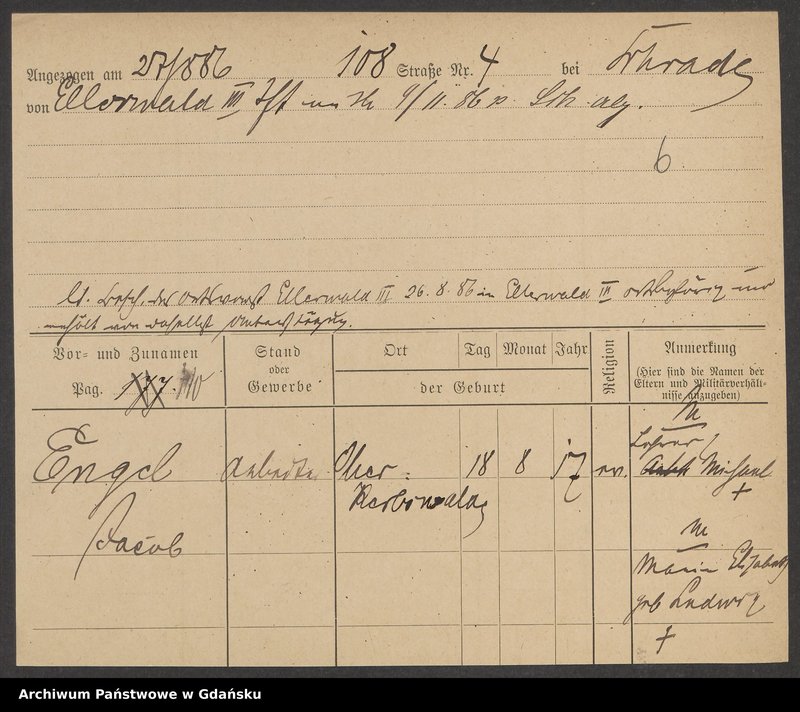 Angezogen am 27/8 86 108 Straße Nr. 4 bei Schrade
von Ellerwald III 9/11. 86
6
lt. Besch. des Ortsvorst Ellerwald III 26. 8. 86 in Ellerwald III ortsangehörig und
erhält von daselbst Unterstützung.
Vor- und Zunamen
Pag. 110
Stand
oder
Gewerbe
Ort Tag Monat Jahr
der Geburt
Religion
Anmerkung
(Hier sind die Namen der
Eltern und Militärverhält-
nisse anzugeben)
Engel
Jacob
Arbeiter
Ober-
Kerbswalde
18 8 17 ev.
Lehrer
Michael
+
Maria Elisabeth
geb Ludwig
+
Archiwum Państwowe w Gdańsku